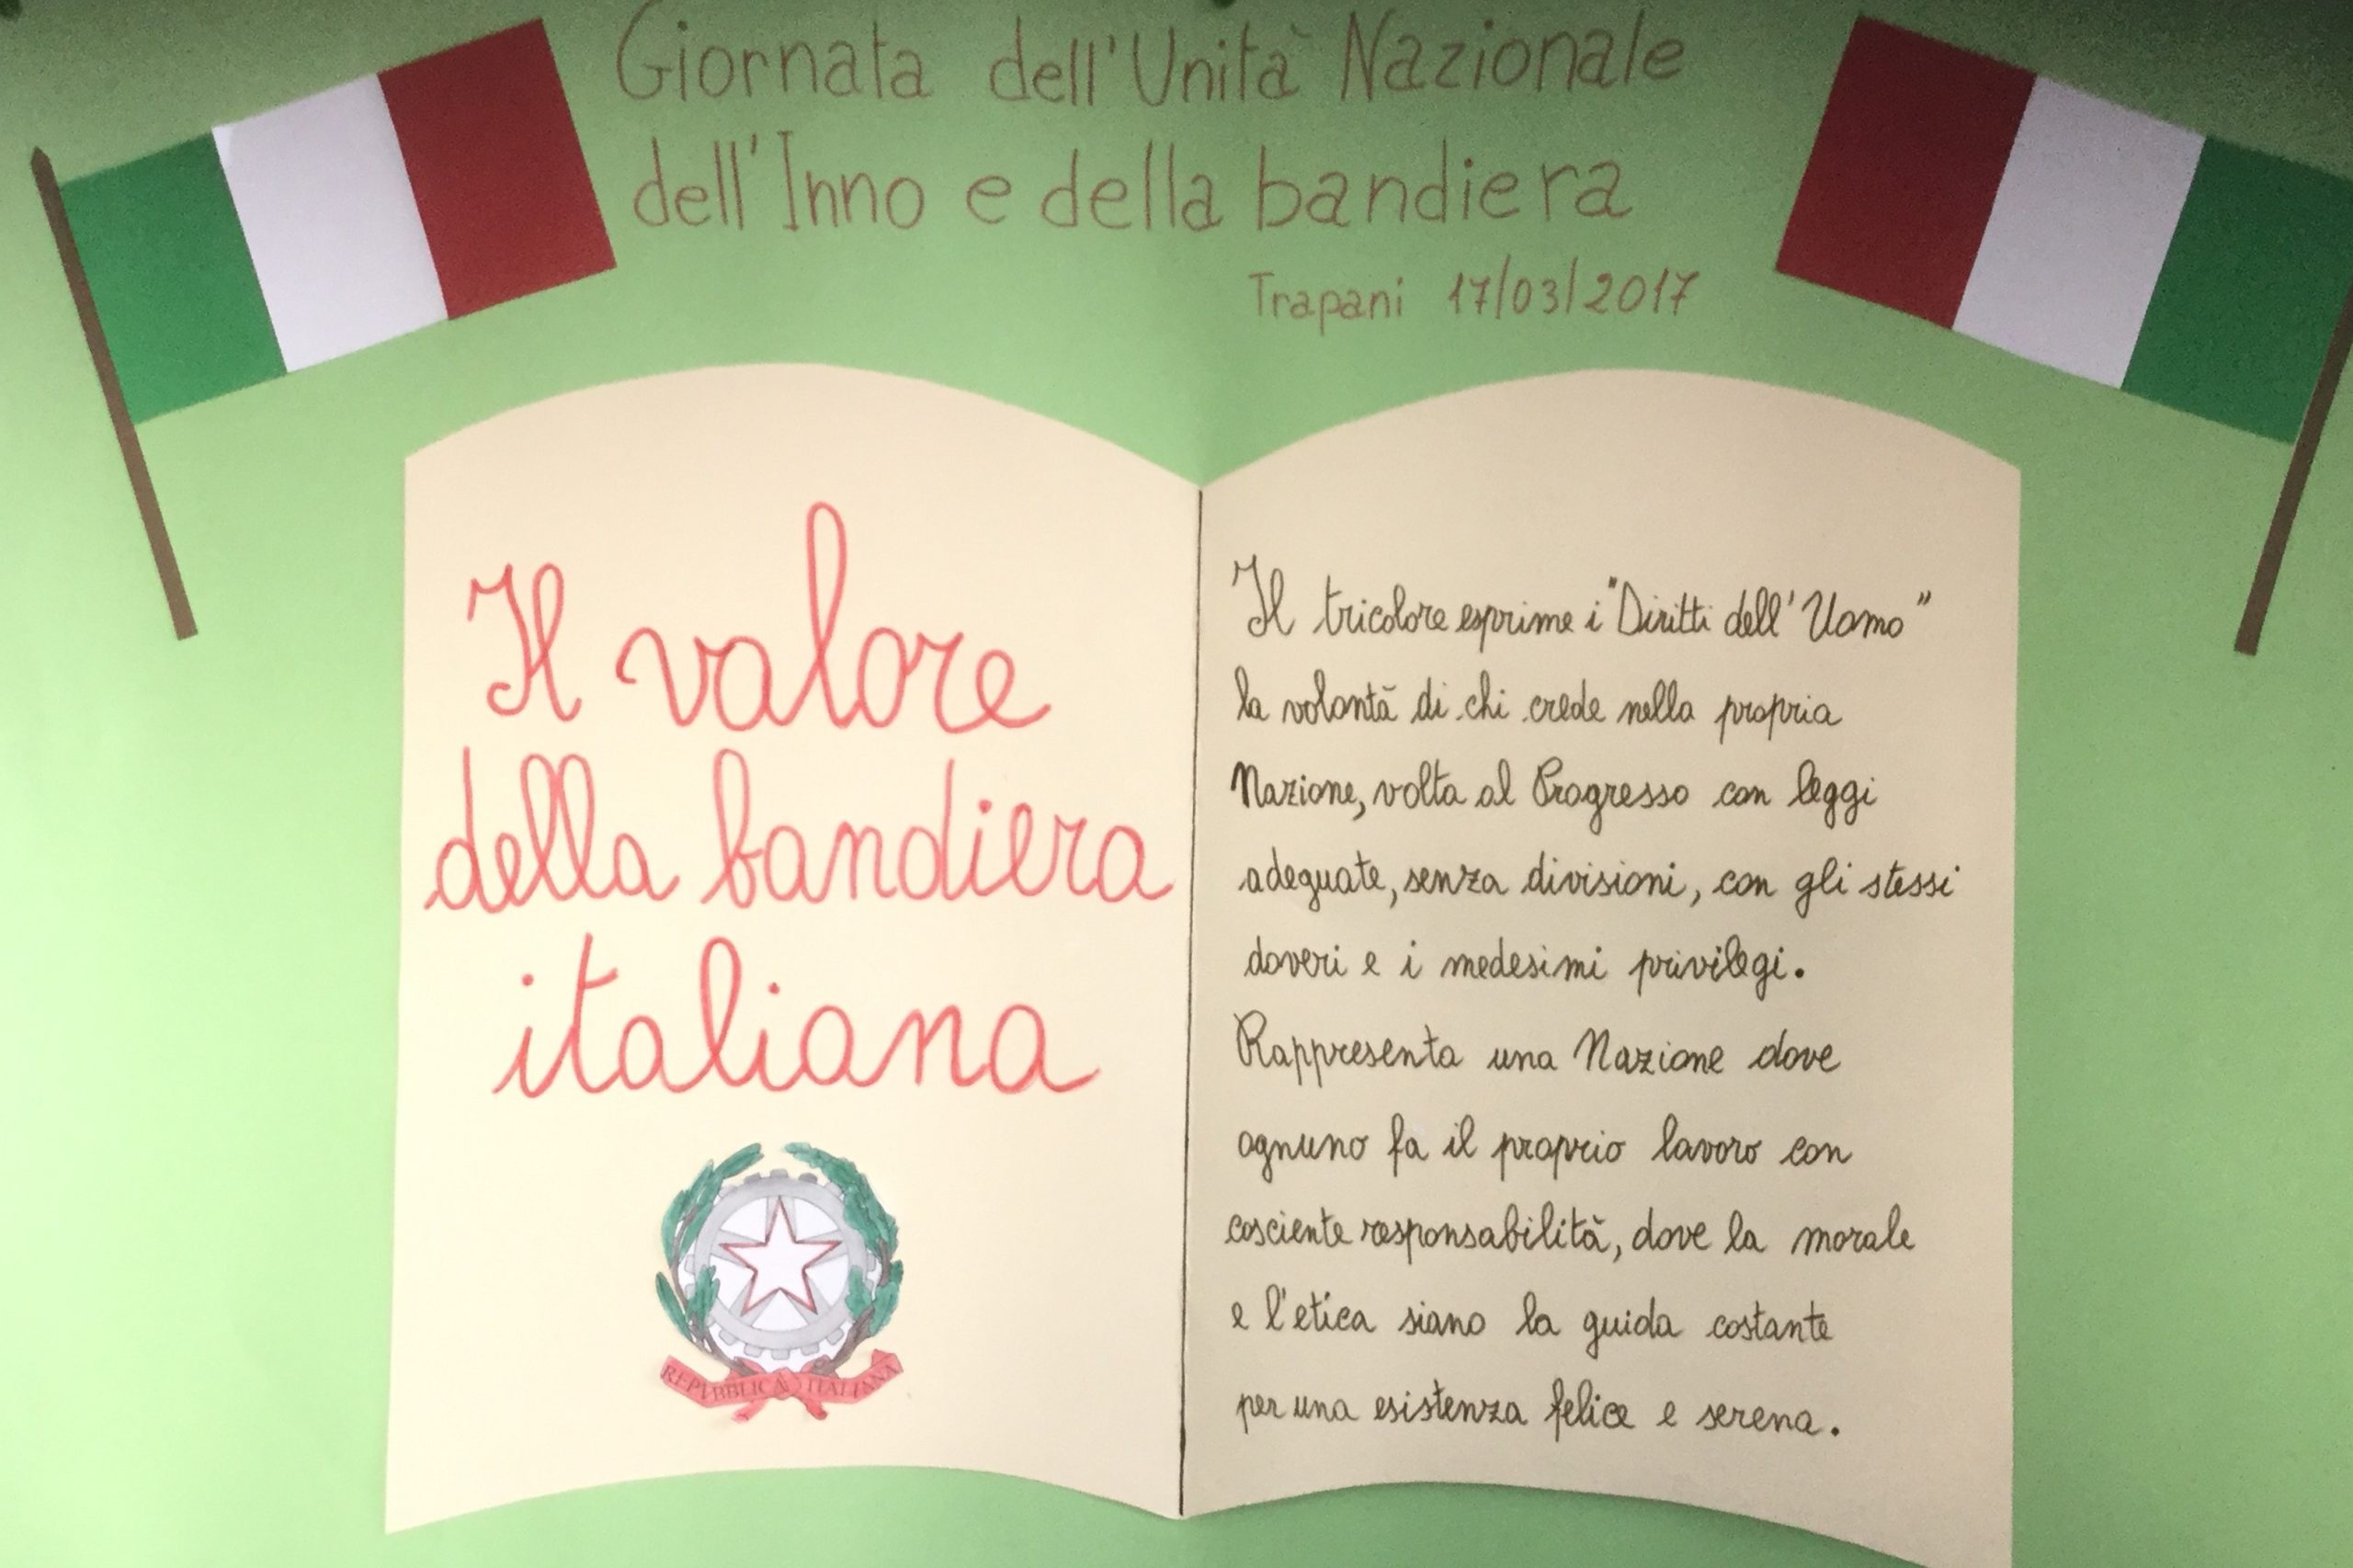 Giornata dell'Unità Nazionale
dell'Inno e della bandiera
Trapani 17/03/2017
Il valore
della bandiera
italiana
REPVBBLICA ITALIANA
Il tricolore esprime i "Diritti dell'Uomo"
la volontà di chi crede nella propria
Nazione, volta al Progresso con leggi
adeguate, senza divisioni, con gli stessi
doveri e i medesimi privilegi.
Rappresenta una Nazione dove
ognuno fa il proprio lavoro con
cosciente responsabilità, dove la morale
e l'etica siano la guida costante
per una esistenza felice e serena.